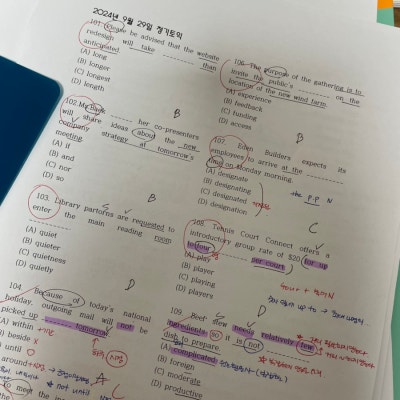 2024년 9월 29일 정기토익
101. Please be advised that the website
redesign will take ---------- than
anticipated.
(A) long
(B) longer
(C) longest
(D) length
B
102. My Baek ---- her co-presenters
will share ideas about the new
company strategy at tomorrow's
meeting.
(A) if
(B) and
(C) nor
(D) so
B
103. Library partorns are requested to
enter the main reading room
----------.
(A) quiet
(B) quieter
(C) quietness
(D) quietly
D
104. Because of today's national
holiday, outgoing mail will not be
picked up ---------- tomorrow.
(A) within
(B) beside
(C) until
around
A
106. The purpose of the gathering is to
invite the public's ---------- on the
location of the new wind farm.
(A) experience
(B) feedback
(C) funding
(D) access
B
107. Eden Builders expects its
employees to arrive at the ----------
time on Monday morning.
(A) designate
(B) designating
(C) designated
(D) designation
the p.p N
C
108. Tennis Court Connect offers a
introductory group rate of $20 for up
to four ---------- per court.
(A) play
(B) player
(C) playing
(D) players
D
109. Beef stew needs relatively few
ingredients, so it is not ----------
dish to prepare.
(A) complicated
(B) foreign
(C) moderate
(D) productive